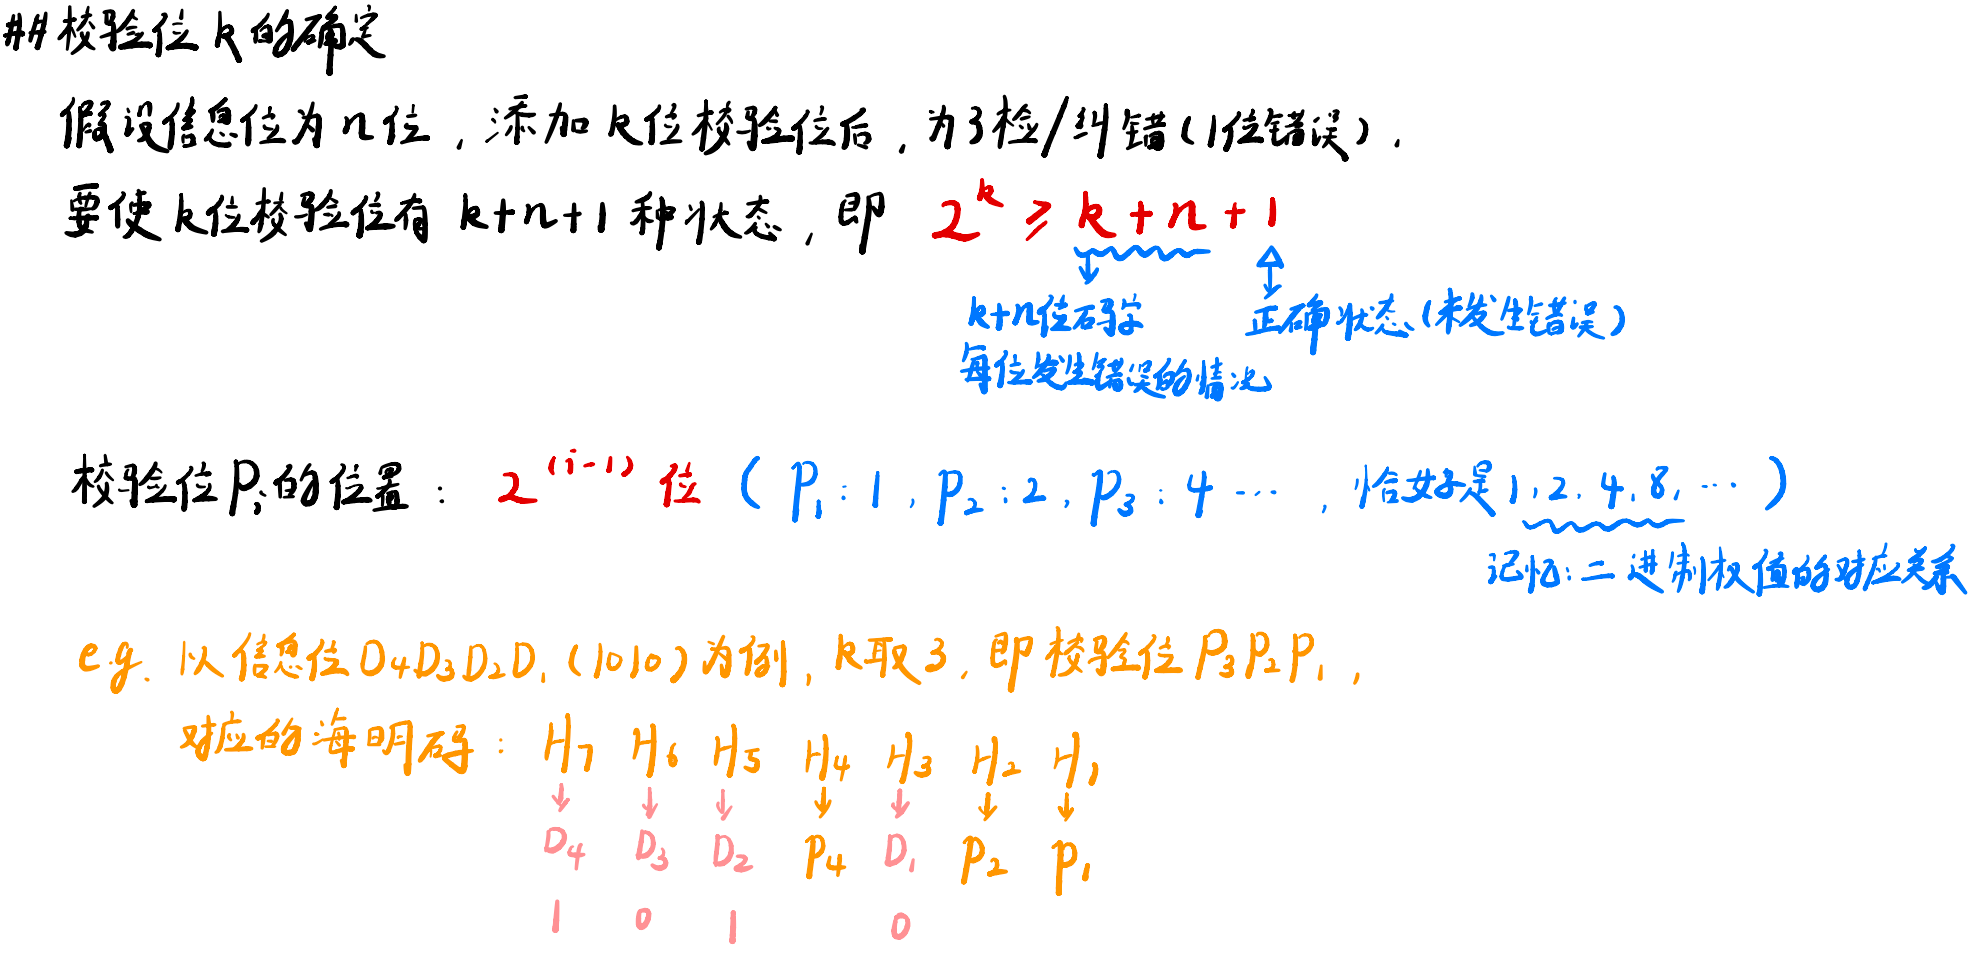 ## 校验位 k 的确定
假设信息位为 n 位，添加 k 位校验位后，为了检/纠错(1位错误).
要使 k 位校验位有 k+n+1 种状态，即 2^k ≥ k+n+1
k+n位码字 正确状态(未发生错误)
每位发生错误的情况
校验位 Pᵢ 的位置： 2^(i-1) 位 ( P₁:1, P₂:2, P₃:4 …, 恰好是 1,2,4,8,… )
记忆:二进制权值的对应关系
e.g. 以信息位 D₄D₃D₂D₁ (1010) 为例, k取 3, 即校验位 P₃P₂P₁,
对应的海明码: H₇ H₆ H₅ H₄ H₃ H₂ H₁
↓ ↓ ↓ ↓ ↓ ↓ ↓
D₄ D₃ D₂ P₄ D₁ P₂ P₁
1 0 1 0